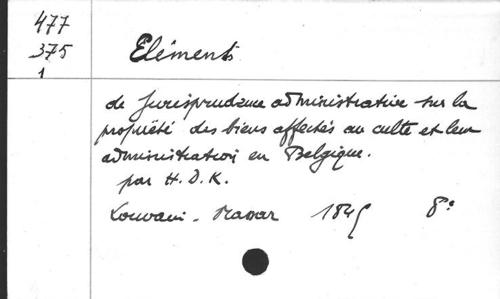 477
375
1
Eléments
de Jurisprudence administrative sur la
propriété des biens affectés au culte et leur
administration en Belgique.
par H. D. K.
Louvain - 184 8°